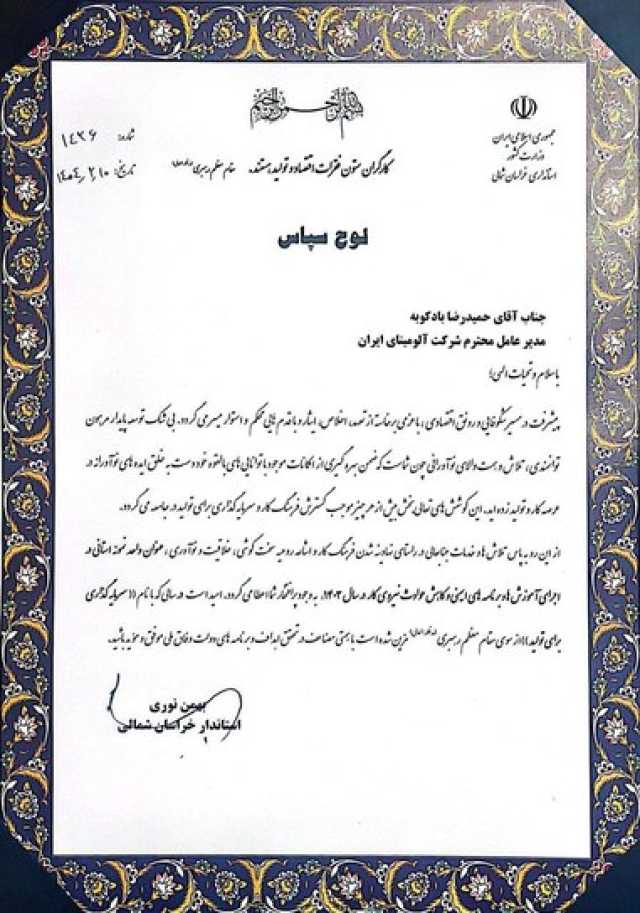 بسم الله الرحمن الرحیم
جمهوری اسلامی ایران
وزارت کشور
استانداری خراسان شمالی
شماره: ۱۴۳۶
تاریخ: ۱۴۰۴/۲/۱۰
کارگران ستون فقرات اقتصاد و تولید هستند. مقام معظم رهبری
لوح سپاس
جناب آقای حمیدرضا بادکوبه
مدیر عامل محترم شرکت آلومینای ایران
با سلام و تحیات الهی؛
پیشرفت در مسیر شکوفایی و رونق اقتصادی، با عزمی برخاسته از تعهد، اخلاص، ایثار و با قدم هایی محکم و استوار میسر می گردد. بی شک توسعه پایدار مرهون
توانمندی، تلاش و همت والای نوآورانی چون شماست که ضمن بهره گیری از امکانات موجود با توانایی های بالقوه خود دست به خلق ایده های نوآورانه در
عرصه کار و تولید زده اید. این کوشش های تعالی بخش بیش از هر چیز موجب گسترش فرهنگ کار و سرمایه گذاری برای تولید در جامعه می گردد.
از این رو به پاس تلاش ها و خدمات جنابعالی در راستای نهادینه شدن فرهنگ کار و اشاعه روحیه سخت کوشی، خلاقیت و نوآوری، عنوان واحد نمونه استانی در
اجرای آموزش ها و برنامه های ایمنی و کاهش حوادث نیروی کار در سال ۱۴۰۳، به وجود پرافتخار شما اعطا می گردد. امید است در سالی که با نام ((سرمایه گذاری
برای تولید)) از سوی مقام معظم رهبری مزین شده است با همتی مضاعف در تحقق اهداف و برنامه های دولت وفاق ملی موفق و مؤید باشید.
بهمن نوری
استاندار خراسان شمالی